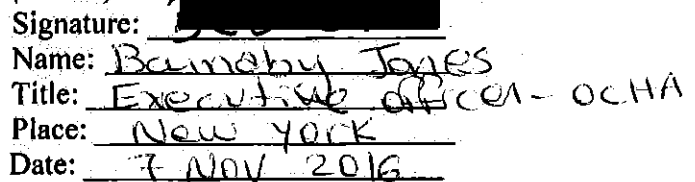 Signature:
Name: Barnaby Jones
Title: Executive officer - OCHA
Place: New York
Date: 7 NOV 2016